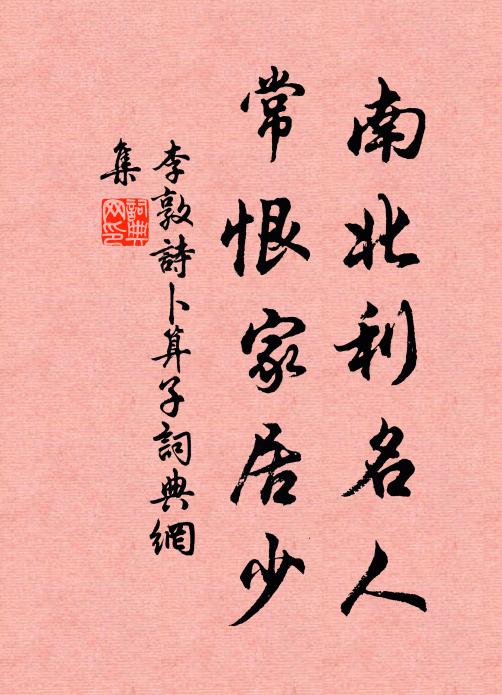 南北利名人
常恨家居少
李敦詩卜算子詞典網
集
詞典
网印